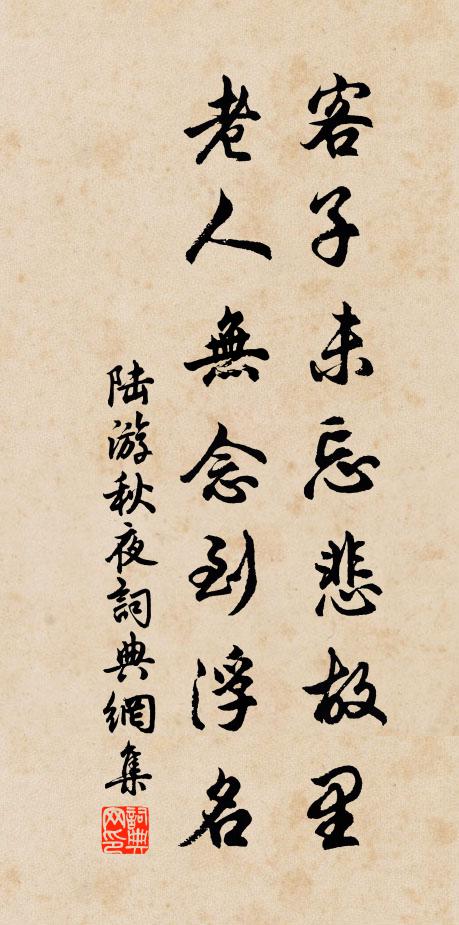 客子未忘悲故里
老人無念到浮名
陆游秋夜詞典網集
詞典網印